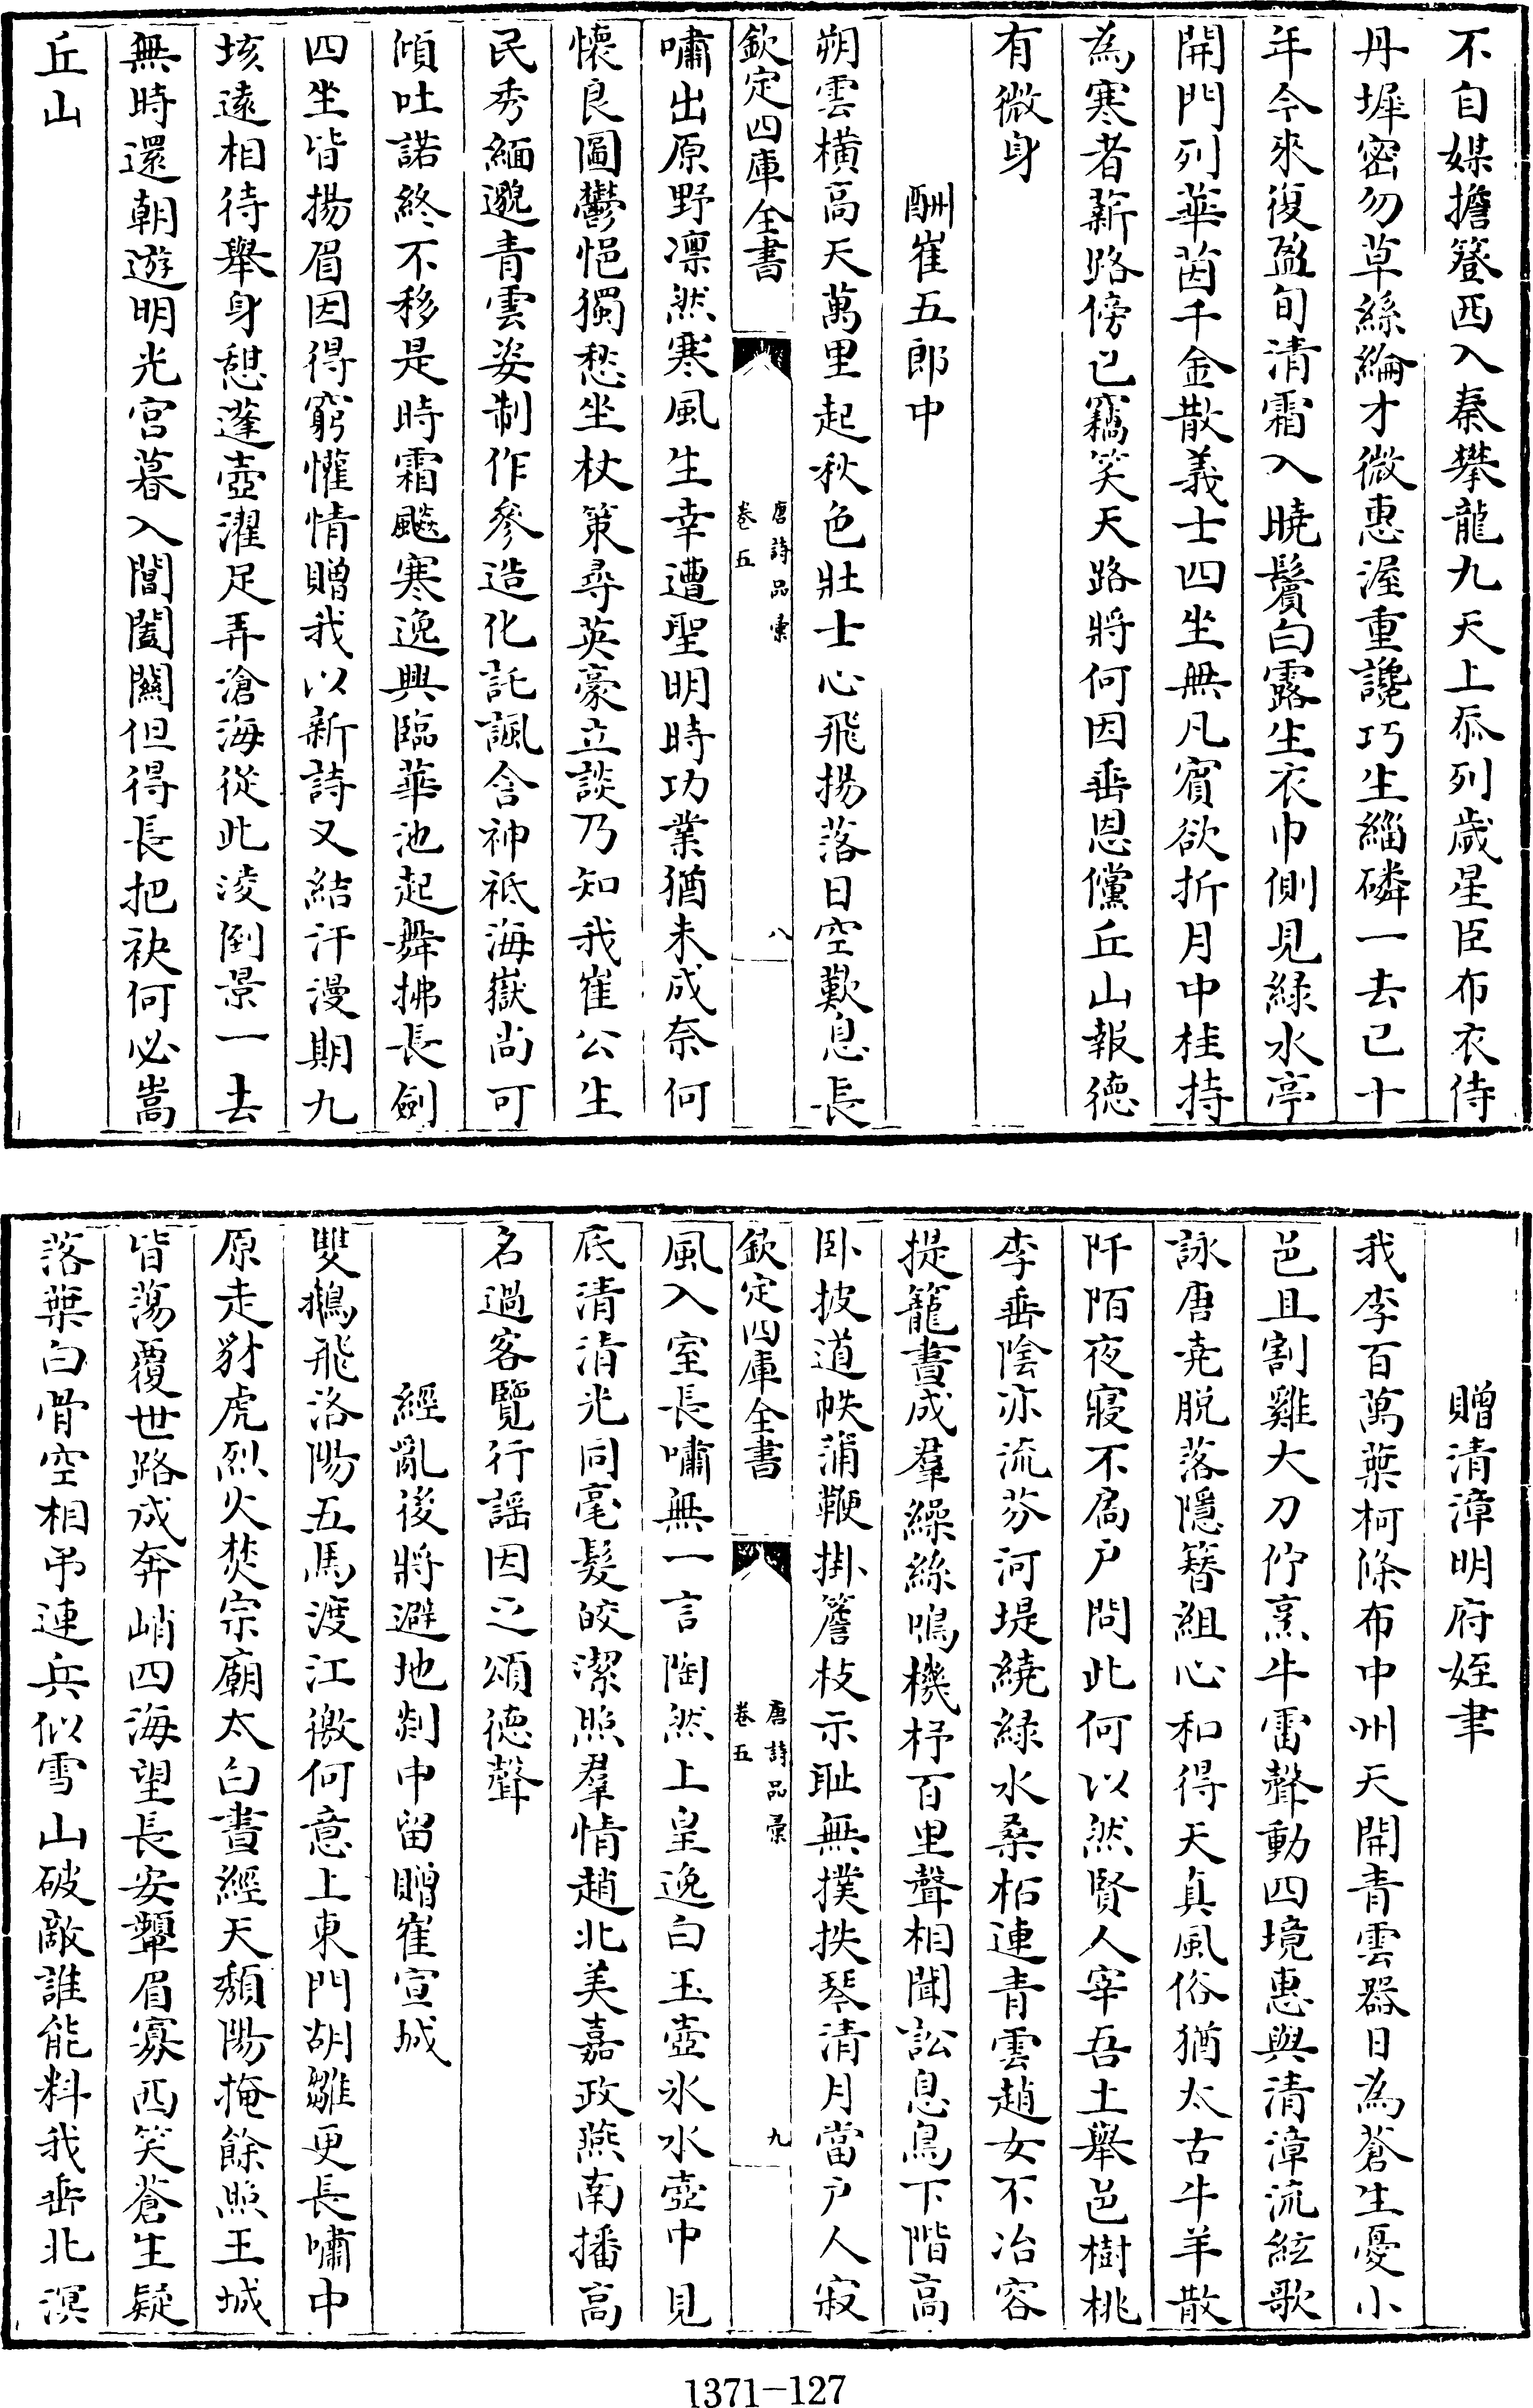 不自媒擔簦西入秦攀龍九天上忝列歲星臣布衣侍
丹墀密勿草絲綸才微惠渥重讒巧生緇磷一去已十
年今來復盈旬清霜入曉鬢白露生衣巾側見綠水亭
開門列華茵千金散義士四坐無凡賓欲折月中桂持
為寒者薪路傍已竊笑天路將何因垂恩儻丘山報德
有微身
酬崔五郎中
朔雲橫高天萬里起秋色壯士心飛揚落日空歎息長
欽定四庫全書
唐詩品彙
卷五
八
嘯出原野凛然寒風生幸遭聖明時功業猶未成奈何
懷良圖鬱悒獨愁坐杖策尋英豪立談乃知我崔公生
民秀緬邈青雲姿制作參造化託諷含神祗海嶽尚可
傾吐諾終不移是時霜飈寒逸興臨華池起舞拂長劍
四坐皆揚眉因得窮懽情贈我以新詩又結汗漫期九
垓遠相待舉身憩蓬壺濯足弄滄海從此淩倒景一去
無時還朝遊明光宮暮入閶闔關但得長把袂何必嵩
丘山
贈清漳明府姪聿
我李百萬葉柯條布中州天開青雲器日為蒼生憂小
邑且割雞大刀佇烹牛雷聲動四境惠與清漳流絃歌
詠唐堯脫落隱簪組心和得天真風俗猶太古牛羊散
阡陌夜寢不扃戶問此何以然賢人宰吾土舉邑樹桃
李垂陰亦流芬河堤繞綠水桑柘連青雲趙女不冶容
提籠晝成羣繰絲鳴機杼百里聲相聞訟息鳥下階高
卧披道帙蒲鞭掛簷枝示耻無撲抶琴清月當戶人寂
欽定四庫全書
唐詩品彙
卷五
九
風入室長嘯無一言陶然上皇逸白玉壺氷水壺中見
底清清光同毫髮皎潔照羣情趙北美嘉政燕南播高
名過客覽行謡因之頌德聲
經亂後將避地剡中留贈崔宣城
雙鵝飛洛陽五馬渡江徼何意上東門胡雛更長嘯中
原走豺虎烈火焚宗廟太白晝經天頹陽掩餘照王城
皆蕩覆世路成奔峭四海望長安顰眉寡西笑蒼生疑
落葉白骨空相弔連兵似雪山破敵誰能料我垂北溟
1371—127